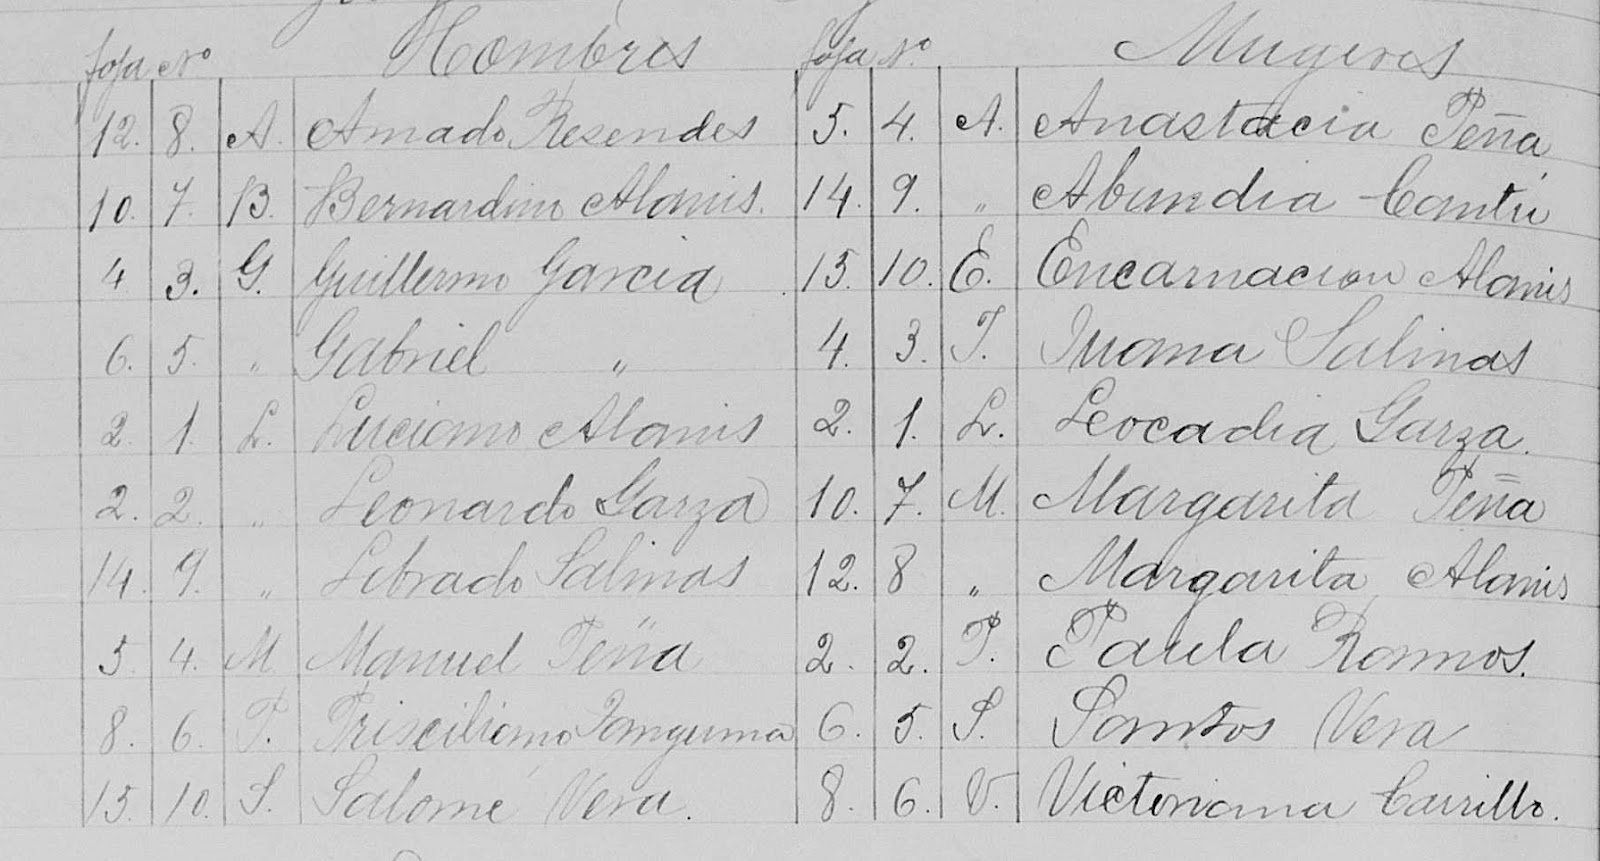 foja Nº Hombres foja Nº Mugeres
12. 8. A. Amado Resendes 5. 4. A. Anastacia Peña
10. 7. B. Bernardino Alanis. 14. 9. " Abundia Cantú
4 3. G. Guillermo Garcia 15. 10. E. Encarnacion Alanis
6. 5. " Gabriel " 4. 3. J. Juana Salinas
2. 1. L. Luciano Alanis 2. 1. L. Leocadia Garza.
2. 2. " Leonardo Garza 10. 7. M. Margarita Peña
14. 9. " Librado Salinas 12. 8 " Margarita Alanis
5 4. M Manuel Peña 2. 2. P. Paula Ramos.
8. 6. P. Prisciliano Tanguma 6. 5. S. Santos Vera
15. 10. S. Salomé Vera. 8. 6. V. Victoriana Carrillo.